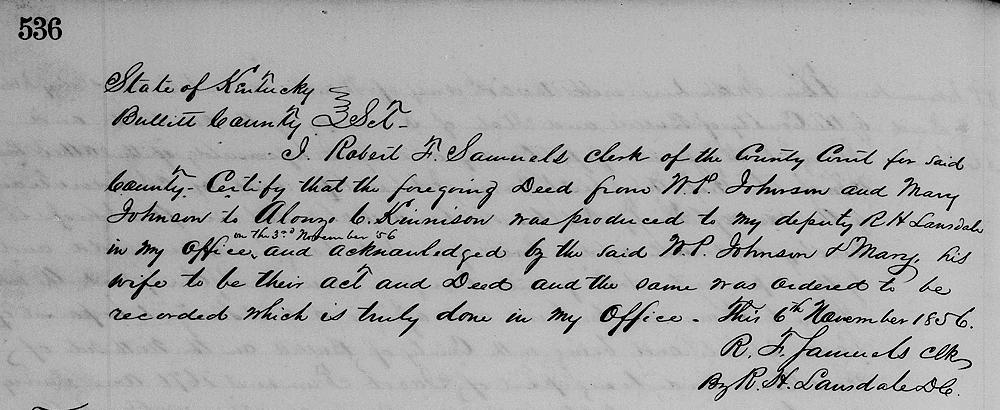 536
State of Kentucky
Bullitt County } Sct-
I. Robert F. Samuels clerk of the County Court for said
County- Certify that the foregoing Deed from W.P. Johnson and Mary
Johnson to Alonzo C. Kinnison was produced to my deputy R H Lansdale
on the 3rd November 56
in my Office, and acknowledged by the said W.P. Johnson & Mary, his
wife to be their act and Deed and the same was ordered to be
recorded which is truly done in my Office - This 6th November 1856.
R. F. Samuels clk
By R. H. Lansdale D.C.